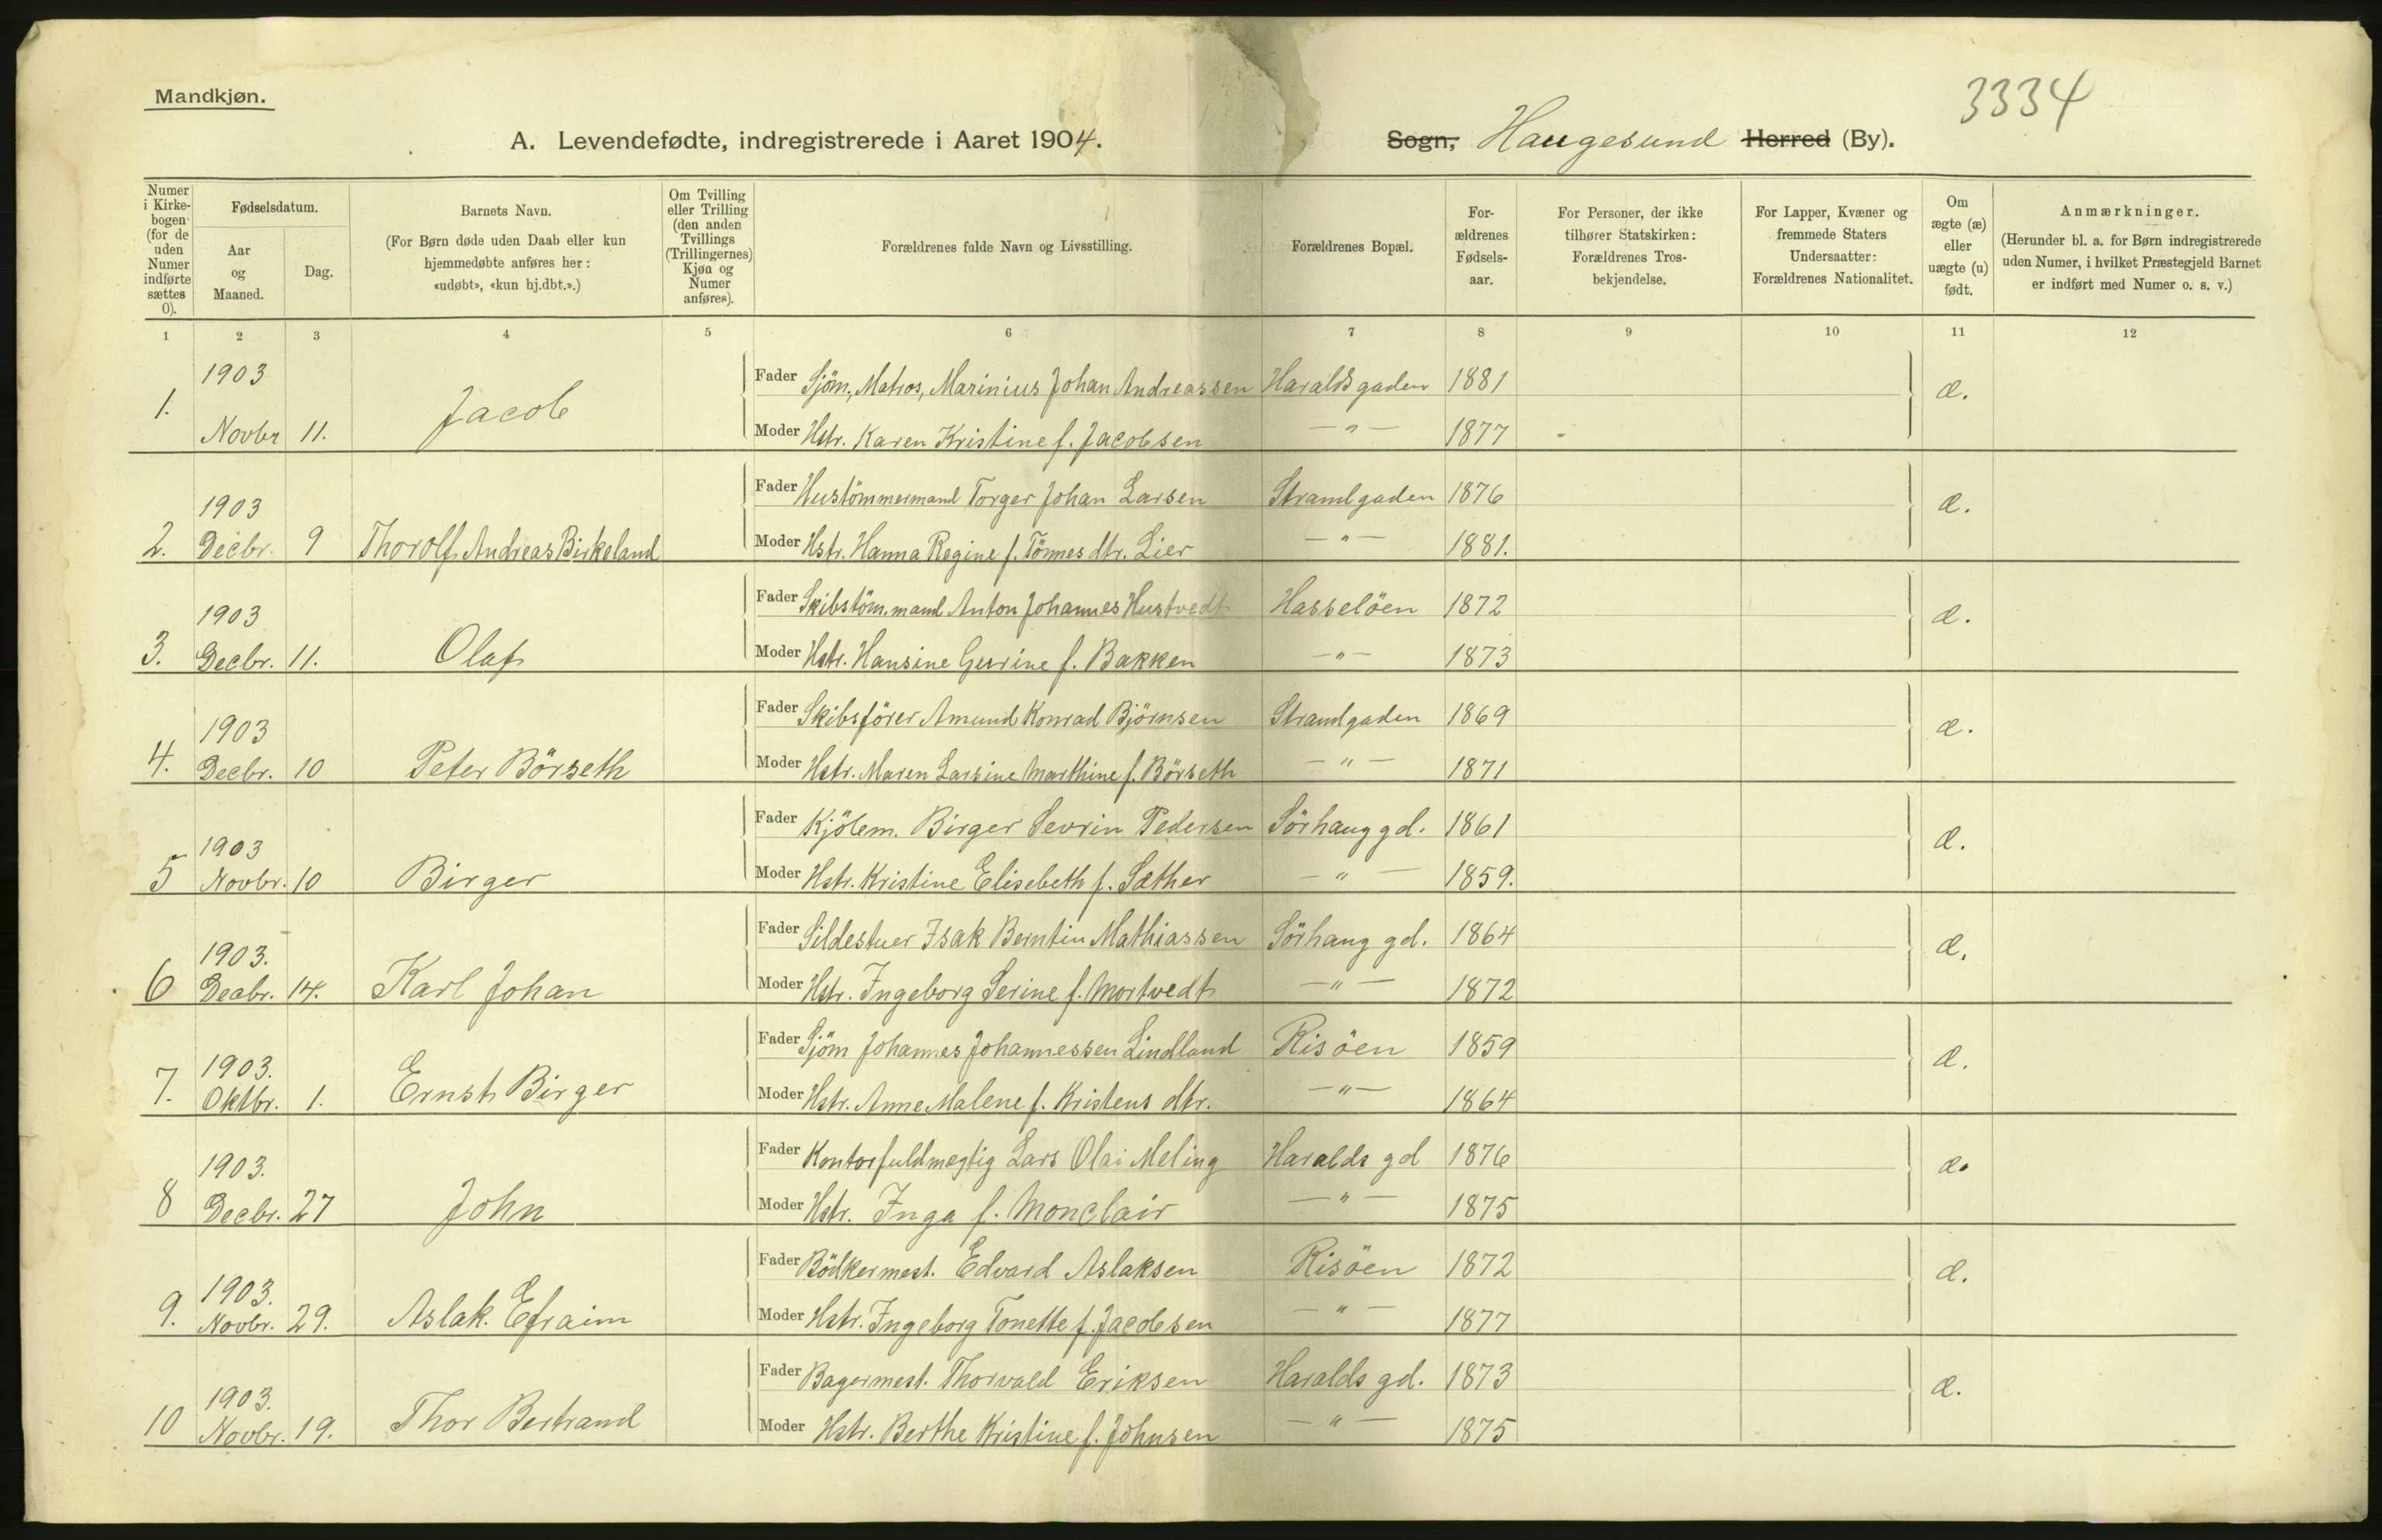 Mandkjøn.
3334
A. Levendefødte, indregistrerede i Aaret 1904.
Sogn, Haugesund Herred (By).
Numer i Kirke-bogen (for de uden Numer indførte sættes 0).
Fødselsdatum.
Aar og Maaned.
Dag.
Barnets Navn.
(For Børn døde uden Daab eller kun hjemmedøbte anføres her: «udøbt», «kun hj.dbt.».)
Om Tvilling eller Trilling (den anden Tvillings (Trillingernes) Kjøn og Numer anføres).
Forældrenes fulde Navn og Livsstilling.
Forældrenes Bopæl.
For-ældrenes Fødsels-aar.
For Personer, der ikke tilhører Statskirken: Forældrenes Tros-bekjendelse.
For Lapper, Kvæner og fremmede Staters Undersaatter: Forældrenes Nationalitet.
Om ægte (æ) eller uægte (u) født.
Anmærkninger.
(Herunder bl. a. for Børn indregistrerede uden Numer, i hvilket Præstegjeld Barnet er indført med Numer o. s. v.)
1 2 3 4 5 6 7 8 9 10 11 12
1903
Fader Sjöm, Matros, Marinius Johan Andreassen Haraldsgaden 1881 æ.
1. Novbr 11. Jacob
Moder Hstr. Karen Kristine f. Jacobsen — " — 1877
1903
Fader Hustömmermand Torger Johan Larsen Strandgaden 1876 æ.
2. Decbr. 9 Thorolf Andreas Birkeland
Moder Hstr. Hanna Regine f. Tönnes dtr. Lier — " — 1881.
1903
Fader Skibstöm.mand Anton Johannes Hustvedt Hasselöen 1872 æ.
3. Decbr. 11. Olaf
Moder Hstr. Hansine Gurine f. Bakken — " — 1873
1903
Fader Skibsförer Amund Konrad Björnsen Strandgaden 1869 æ.
4. Decbr. 10 Peter Börseth
Moder Hstr. Maren Larsine Marthine f. Börseth — " — 1871
1903
Fader Kjölem. Birger Sevrin Pedersen Sörhaug gd. 1861 æ.
5 Novbr. 10 Birger
Moder Hstr. Kristine Elisebeth f. Sæther — " — 1859.
1903.
Fader Sildestuer Isak Berntin Mathiassen Sörhaug gd. 1864 æ.
6 Decbr. 14. Karl Johan
Moder Hstr. Ingeborg Serine f. Mortvedt — " — 1872
1903.
Fader Sjöm Johannes Johannessen Lindland Risöen 1859 æ.
7. Oktbr. 1. Ernst Birger
Moder Hstr. Anne Malene f. Kristens dtr. — " — 1864
1903.
Fader Kontorfuldmegtig Lars Olai Meling Haralds gd 1876 æ.
8 Decbr. 27 John
Moder Hstr. Inga f. Monclair — " — 1875
1903.
Fader Bödkermest. Edvard Aslaksen Risöen 1872 æ.
9. Novbr. 29. Aslak Efraim
Moder Hstr. Ingeborg Tonette f. Jacobsen — " — 1877
1903.
Fader Bagermest. Thorvald Eriksen Haralds gd. 1873 æ.
10 Novbr. 19. Thor Bertrand
Moder Hstr. Berthe Kristine f. Johnsen — " — 1875